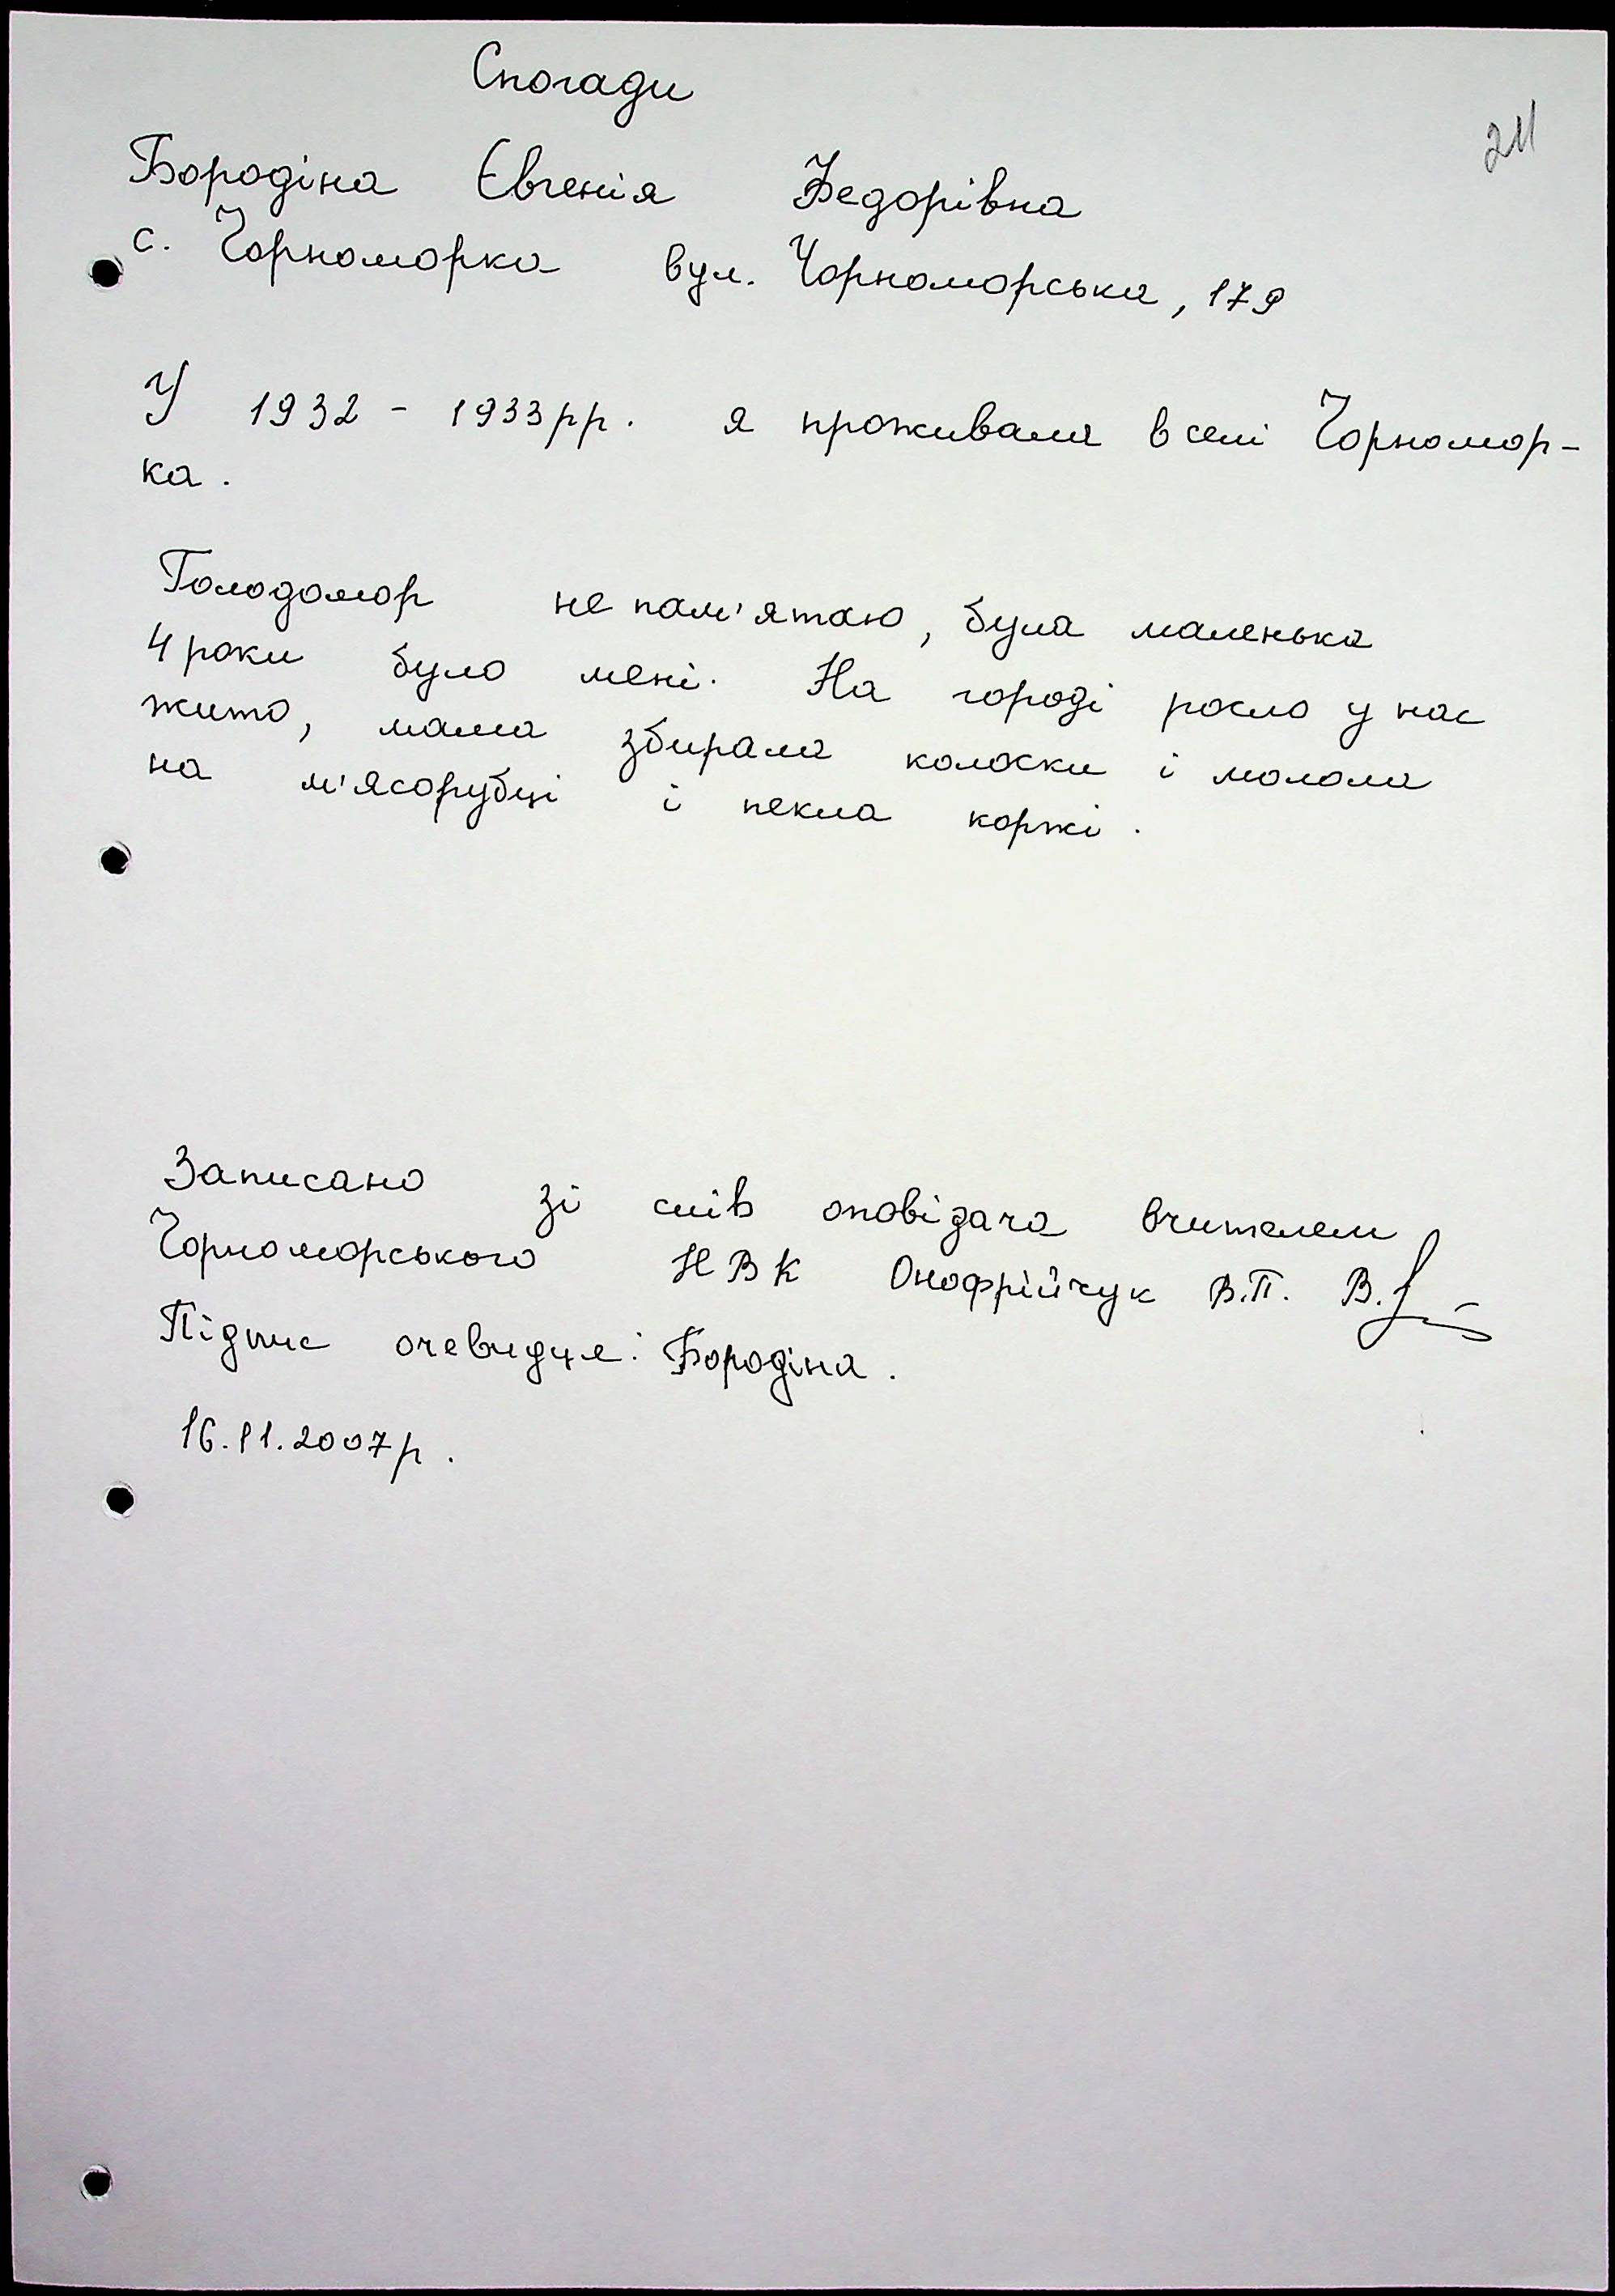 Спогади
211
Бородіна Євгенія Федорівна
с. Чорноморка вул. Чорноморська, 179
У 1932 - 1933 рр. я проживала в селі Чорномор-
ка.
Голодомор не пам'ятаю, була маленька
4 роки було мені. На городі росло у нас
жито, мама збирала колоски і молола
на м'ясорубці і пекла коржі.
Записано зі слів оповідача вчителем
Чорноморського НВК Онофрійчук В.П.
Підпис очевидця: Бородіна.
16.11.2007 р.